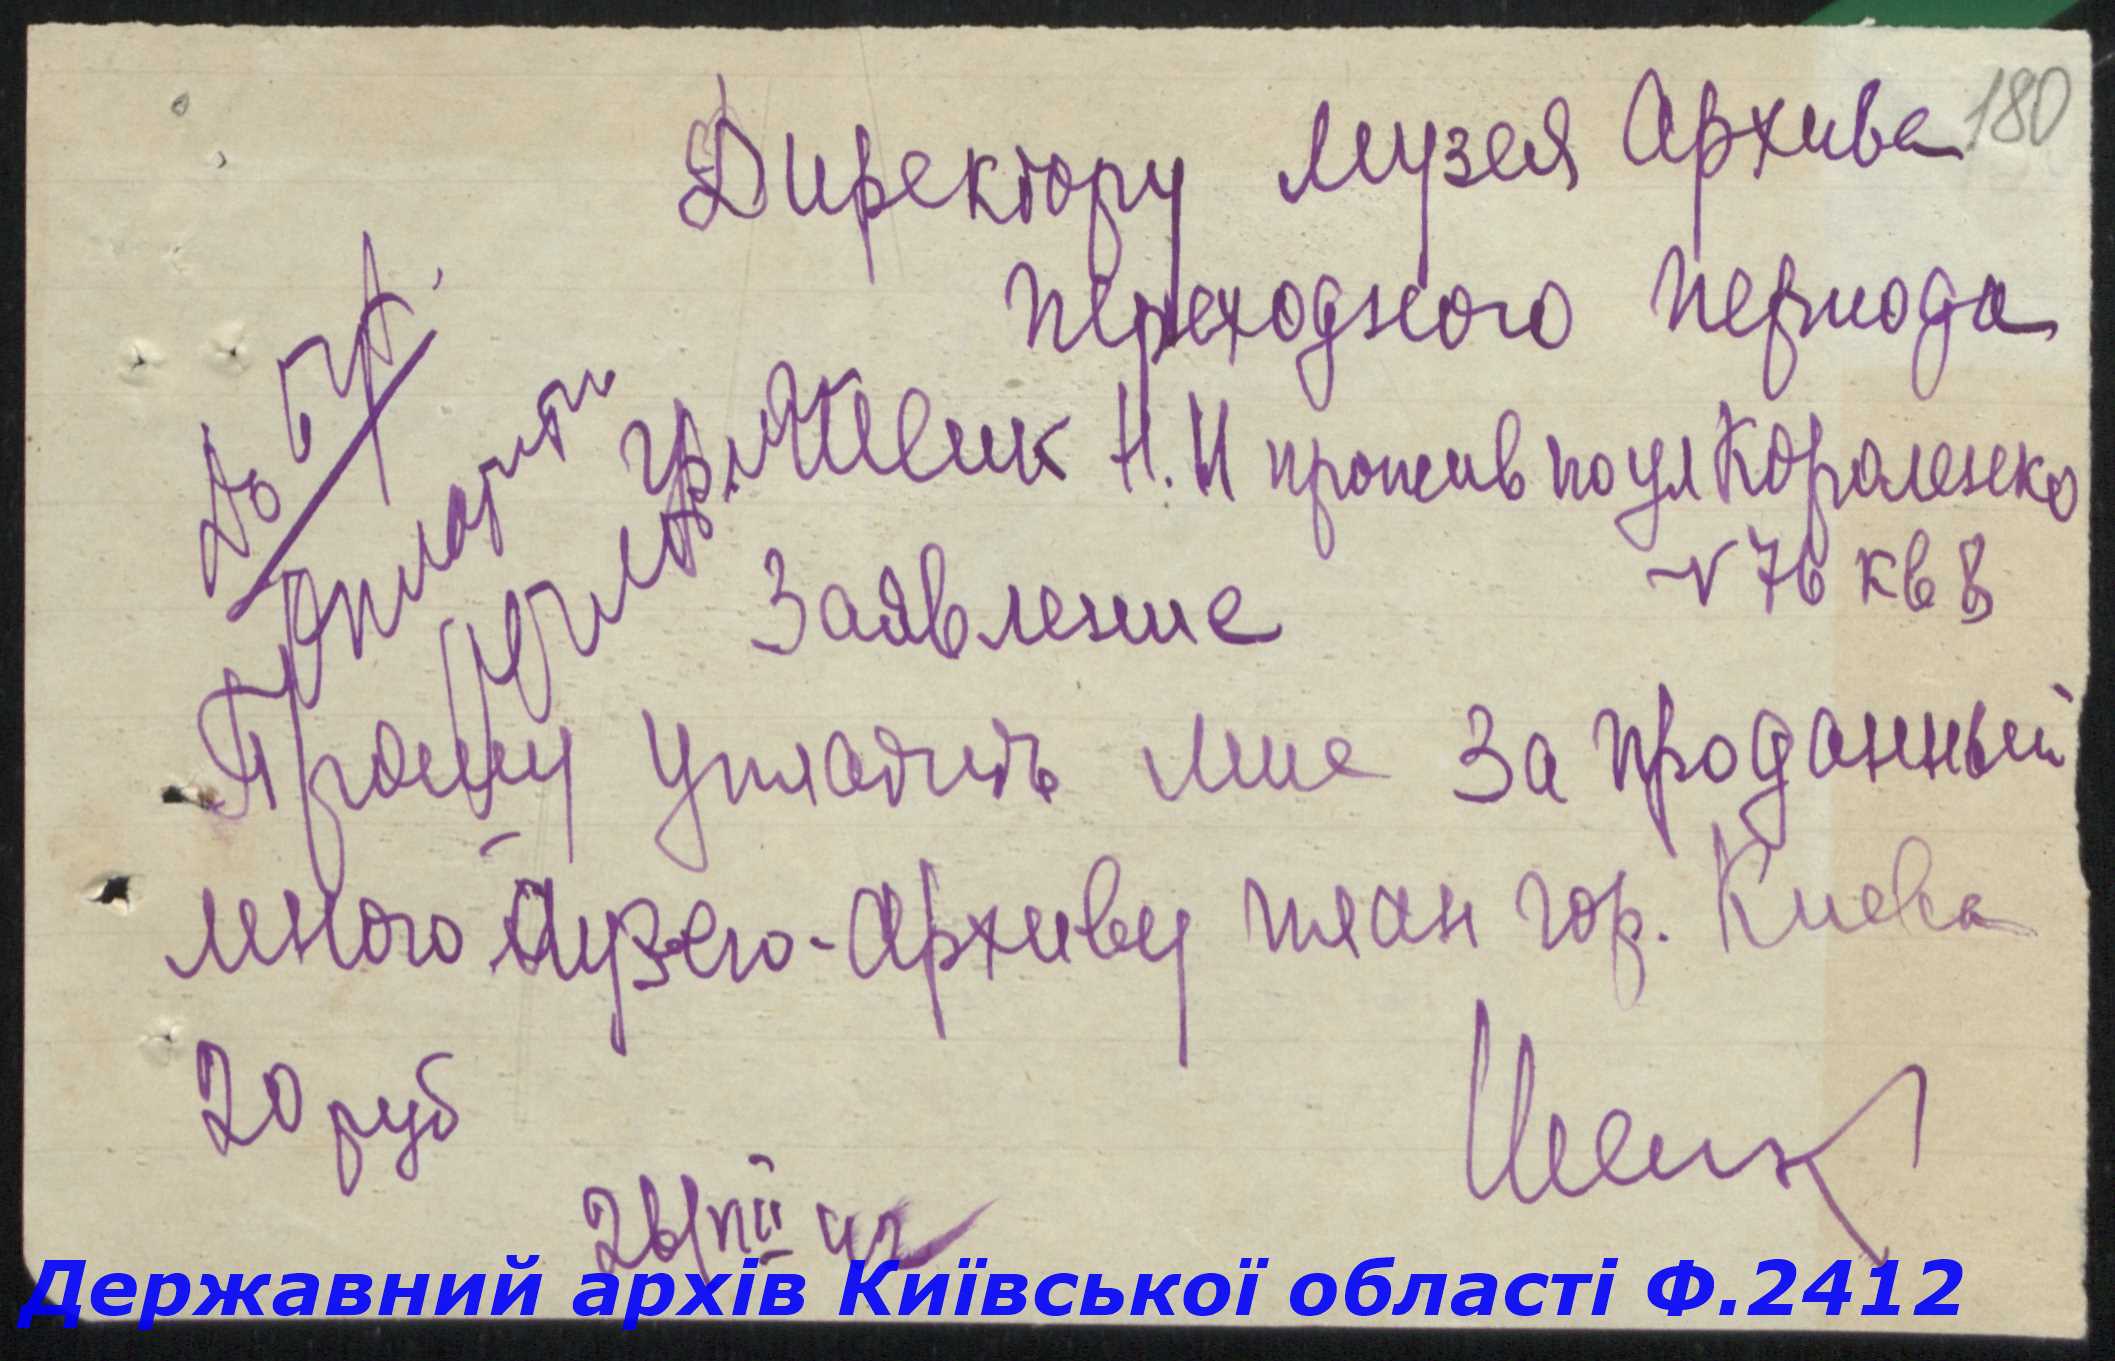 180
Директору музея Архива
переходного периода
гр. Шевик Н.И прожив по ул Короленко
№ 76 кв 8
До
оплати
Заявление
Прошу уплатить мне за проданный
мною Музею-Архиву план гор. Киева
20 руб
26/VII 42
Державний архів Київської області Ф.2412